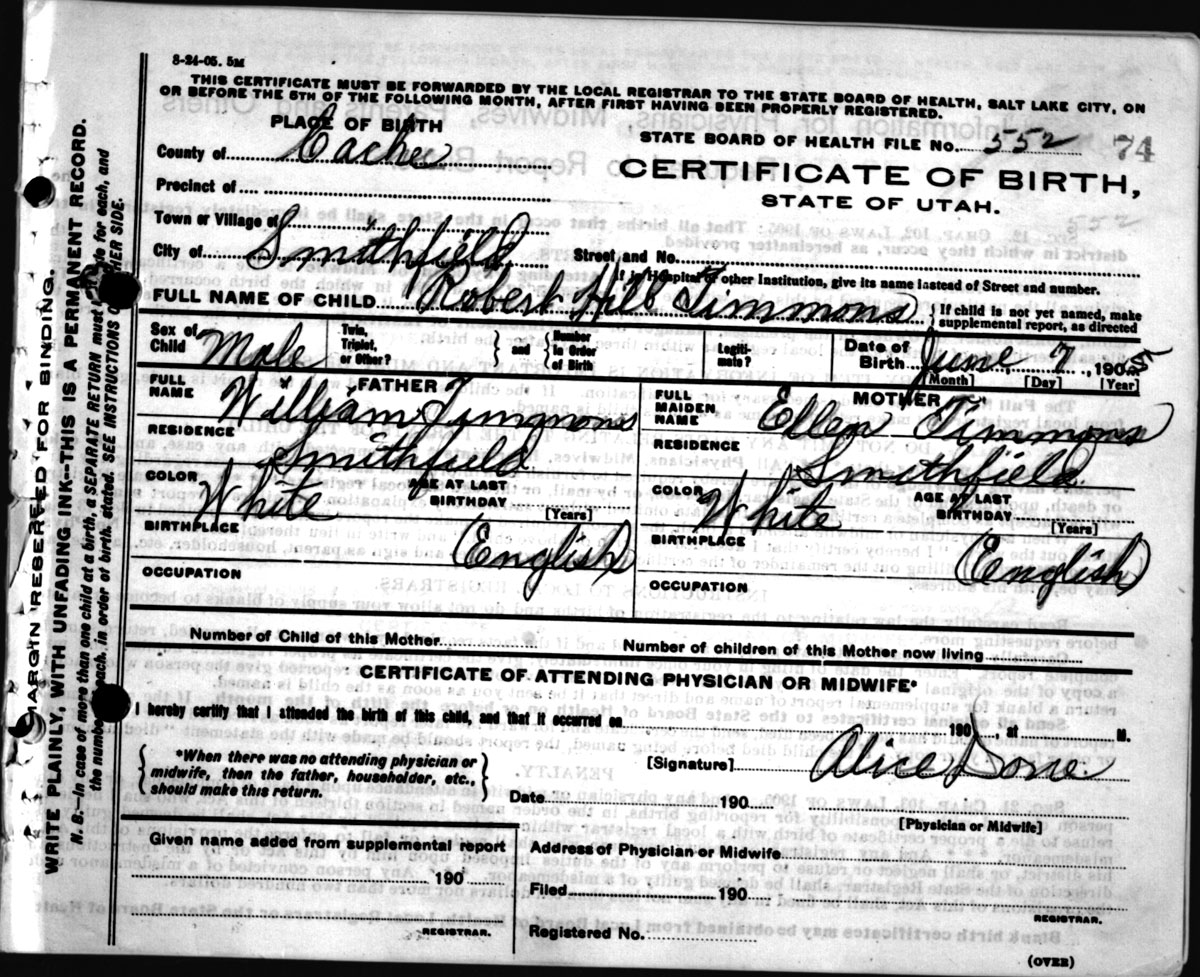 8-24-05. 5M
THIS CERTIFICATE MUST BE FORWARDED BY THE LOCAL REGISTRAR TO THE STATE BOARD OF HEALTH, SALT LAKE CITY, ON
OR BEFORE THE 5TH OF THE FOLLOWING MONTH, AFTER FIRST HAVING BEEN PROPERLY REGISTERED.
PLACE OF BIRTH
STATE BOARD OF HEALTH FILE NO. 552 74
County of Cache
CERTIFICATE OF BIRTH,
STATE OF UTAH.
Precinct of
Town or Village of
City of Smithfield Street and No.
If in Hospital or other Institution, give its name instead of Street and number.
FULL NAME OF CHILD Robert Hill Timmons { If child is not yet named, make supplemental report, as directed
Sex of Child Male Twin, Triplet, or Other? } and { Number in Order of Birth Legiti-mate? Date of Birth June 7, 1905
[Month] [Day] [Year]
FATHER MOTHER
FULL NAME William Timmons FULL MAIDEN NAME Ellen Timmons
RESIDENCE Smithfield RESIDENCE Smithfield
COLOR White AGE AT LAST BIRTHDAY [Years] COLOR White AGE AT LAST BIRTHDAY [Years]
BIRTHPLACE (English) BIRTHPLACE (English)
OCCUPATION OCCUPATION
Number of Child of this Mother Number of children of this Mother now living
CERTIFICATE OF ATTENDING PHYSICIAN OR MIDWIFE*
I hereby certify that I attended the birth of this child, and that it occurred on 190 , at M.
{ *When there was no attending physician or midwife, then the father, householder, etc., should make this return. }
[Signature] Alice Done
Date 190
[Physician or Midwife]
Given name added from supplemental report
190
REGISTRAR.
Address of Physician or Midwife
Filed 190
REGISTRAR.
Registered No.
(OVER)
MARGIN RESERVED FOR BINDING.
WRITE PLAINLY, WITH UNFADING INK—THIS IS A PERMANENT RECORD.
N. B.—In case of more than one child at a birth, a SEPARATE RETURN must be made for each, and
the number of each, in order of birth, stated. SEE INSTRUCTIONS ON OTHER SIDE.